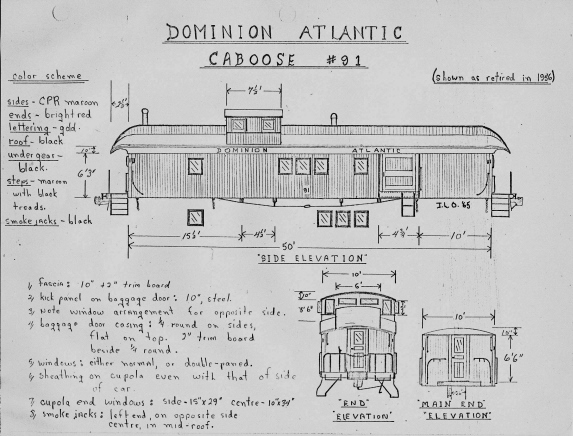 DOMINION ATLANTIC
CABOOSE #91
(shown as retired in 1956)
color scheme
sides - CPR maroon
ends - bright red
lettering - gold
roof - black
undergear - black.
steps - maroon
with black
treads.
smoke jacks - black
7½'
3½'
10"
6'3"
DOMINION ATLANTIC
91
I.L.O. '65
15½'
4½'
4¾'
10'
50'
"SIDE ELEVATION"
1/ Fascia: 10" + 2" trim board
2/ kick panel on baggage door: 10", steel.
3/ Note window arrangement for opposite side.
4/ baggage door casing: ¼ round on sides,
flat on top. 2" trim board
beside ¼ round.
5/ windows: either normal, or double-paned.
6/ sheathing on cupola even with that of side
of car.
7/ cupola end windows: side - 15"x29" centre - 10"x34"
8/ smoke jacks: left end, on opposite side
centre, in mid-roof.
10'
6'
"END"
"ELEVATION"
10'
10"
6'6"
"MAIN END"
"ELEVATION"